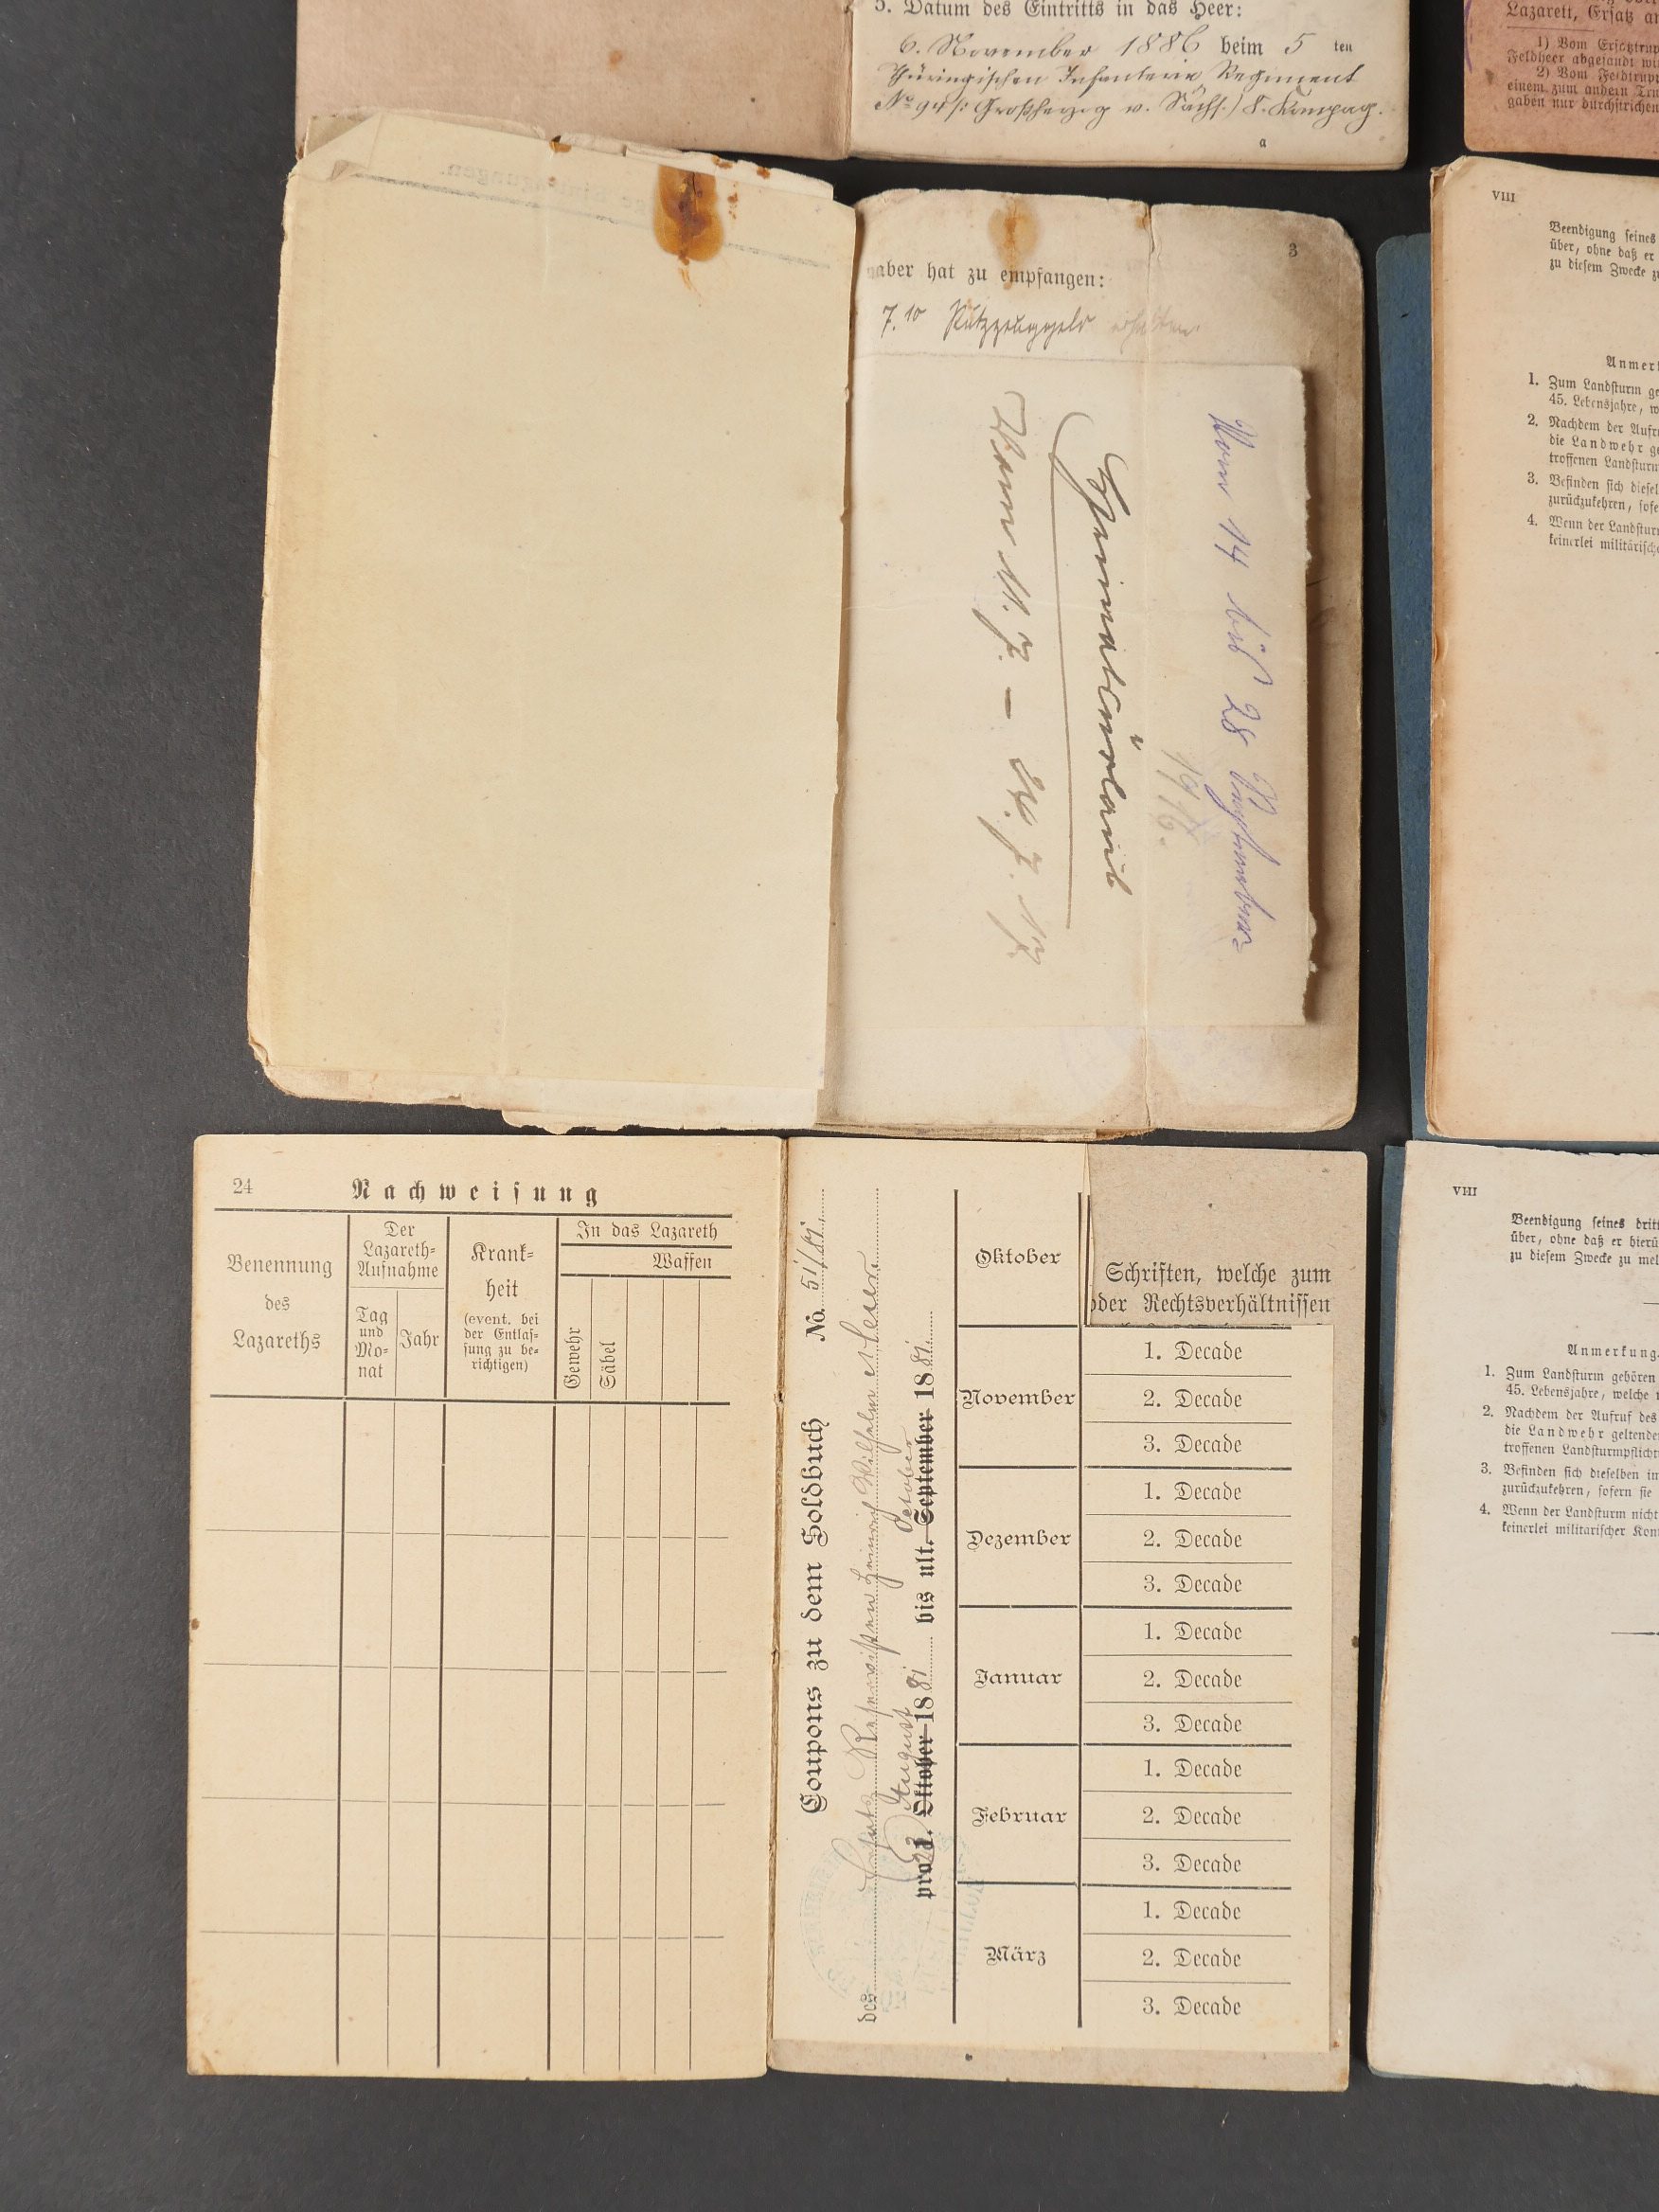 5. Datum des Eintritts in das Heer:
6. November 1886 beim 5 ten
Thüringischen Infanterie Regiment
No 94 (Großherzog v. Sachs.) 8. Kompag.
a
Lazarett, Ersatz
1) Vom Ersatztrup
Feldheer abgesandt
2) Vom Feldtrupp
einem zum andern
gaben nur durchstrichen
3
haber hat zu empfangen:
7.10 Putzzeuggeld erhalten.
Vom 14 bis 28
1916.
Heimaturlaub
Vom 11. 7. – 24. 7. 17
VIII
Beendigung seines
über, ohne daß er
zu diesem Zwecke
Anmerk
1. Zum Landsturm
45. Lebensjahre,
2. Nachdem der Aufru
die Landwehr
troffenen Landsturm
3. Befinden sich diesel
zurückzukehren, sofe
4. Wenn der Landstur
keinerlei militärisch
24
Nachweisung
Benennung
des
Lazareths
Der
Lazareth-
Aufnahme
Tag
und
Mo-
nat
Jahr
Krank-
heit
(event. bei
der Entlas-
sung zu be-
richtigen)
In das Lazareth
Waffen
Gewehr
Säbel
Coupons zu dem Soldbuch No. 51/81
des Ersatz Reservisten Heinrich Wilhelm
August October
pro 1. Oktober 1881 bis ult. September 1881
Schriften, welche zum
oder Rechtsverhältnissen
Oktober
November
1. Decade
2. Decade
3. Decade
Dezember
1. Decade
2. Decade
3. Decade
Januar
1. Decade
2. Decade
3. Decade
Februar
1. Decade
2. Decade
3. Decade
März
1. Decade
2. Decade
3. Decade
VIII
Beendigung seines drit
über, ohne daß er hierü
zu diesem Zwecke zu mel
Anmerkung
1. Zum Landsturm gehören
45. Lebensjahre, welche
2. Nachdem der Aufruf des
die Landwehr geltende
troffenen Landsturmpflicht
3. Befinden sich dieselben im
zurückzukehren, sofern sie
4. Wenn der Landsturm nicht
keinerlei militärischer Kon